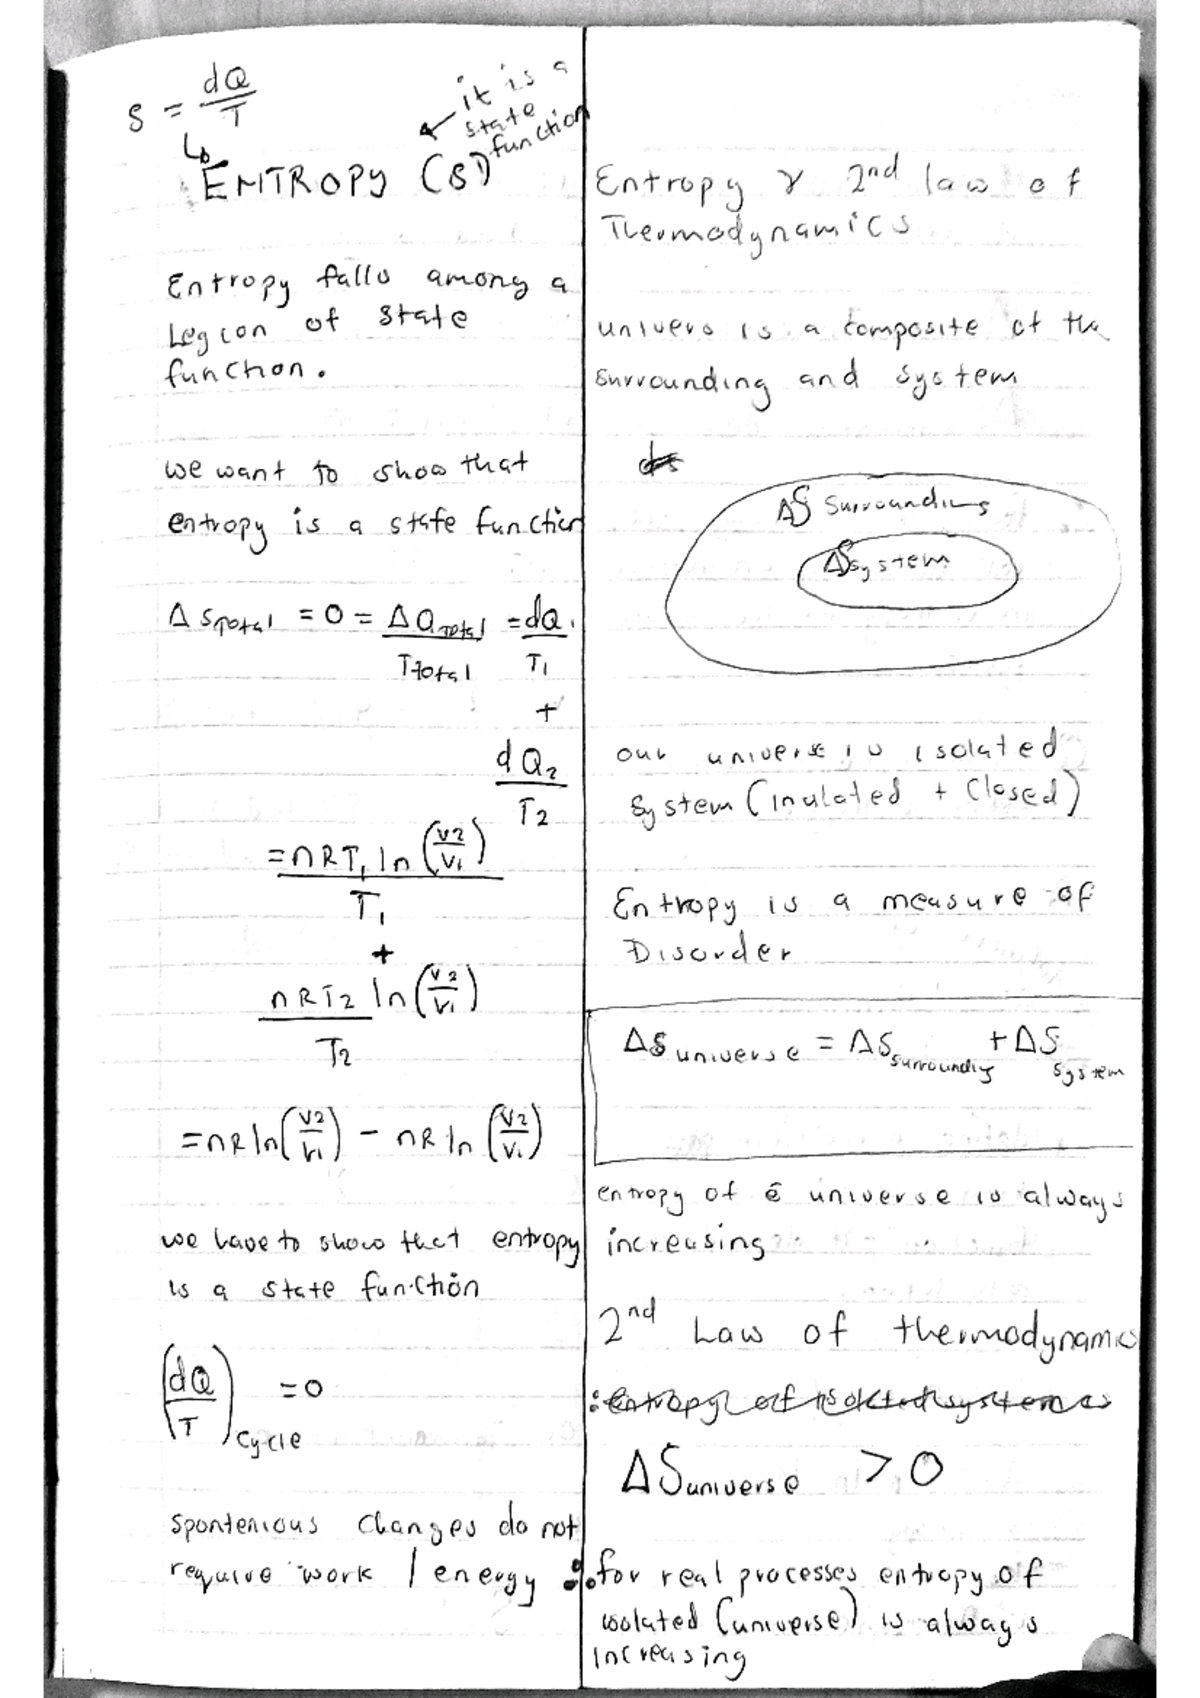 S = dQ/T
it is a
state
function
ENTROPY (S)
Entropy falls among a
Legion of state
function.
we want to show that
entropy is a state function
ΔS Total = 0 = ΔQ Total / T total = dQ1 / T1
+
dQ2 / T2
= nRT1 ln (V2/V1) / T1
+
nRT2 ln (V2/V1) / T2
= nR ln (V2/V1) - nR ln (V2/V1)
we have to show that entropy
is a state function
(dQ/T) cycle = 0
spontenious changes do not
require work / energy
Entropy & 2nd law of
Thermodynamics
univers is a composite of the
surrounding and system
ΔS surroundings
ΔS system
our universe is isolated
system (inulated + closed)
Entropy is a measure of
Disorder
ΔS universe = ΔS surroundings + ΔS system
entropy of ē universe is always
increasing
2nd Law of thermodynamics
: entropy of isolated system is
ΔS universe > 0
for real processes entropy of
isolated (universe) is always
increasing